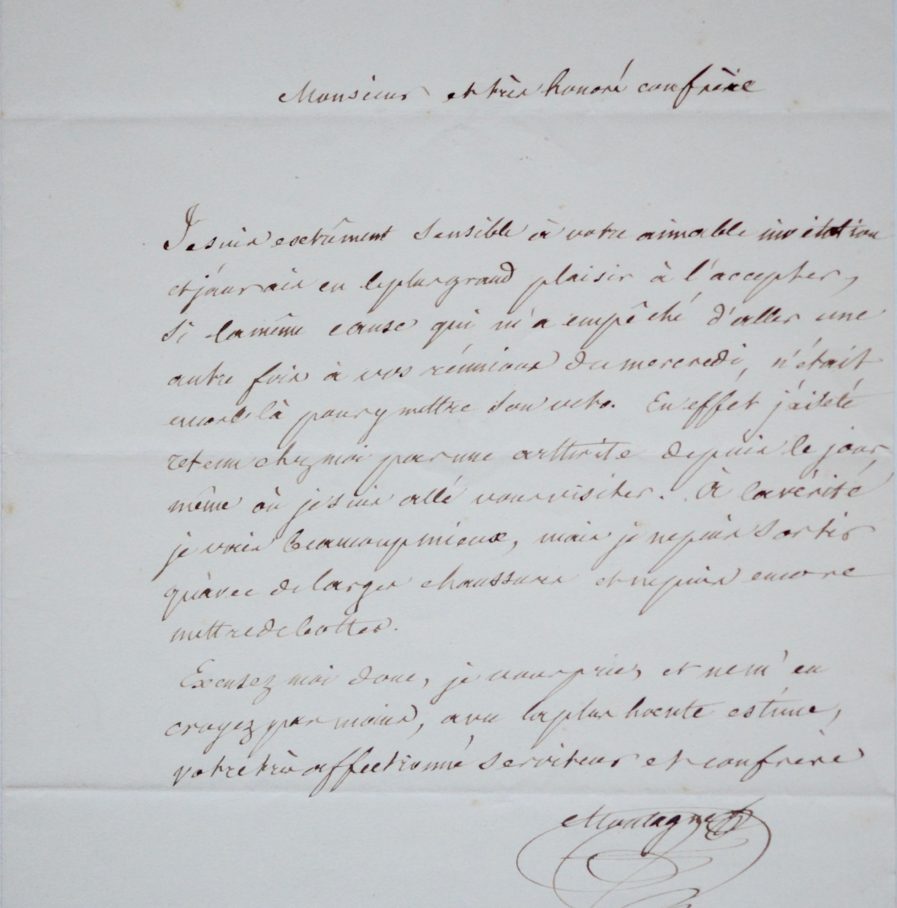 Monsieur et très honoré confrère
Je suis extrêment sensible à votre aimable invitation
et j'aurais eu le plus grand plaisir à l'accepter,
si la même cause qui m'a empêché d'aller une
autre fois à vos réunions du mercredi, n'était
encore là pour y mettre son veto. En effet j'ai été
retenu chez moi par une arthrite depuis le jour
même où je suis allé vous visiter. À la vérité
je vais beaucoup mieux, mais je ne puis sortir
qu'avec de larges chaussures et ne puis encore
mettre de bottes.
Excusez moi donc, je vous prie, et ne m'en
croyez pas moins, avec la plus haute estime,
votre très affectionné serviteur et confrère
Montagne